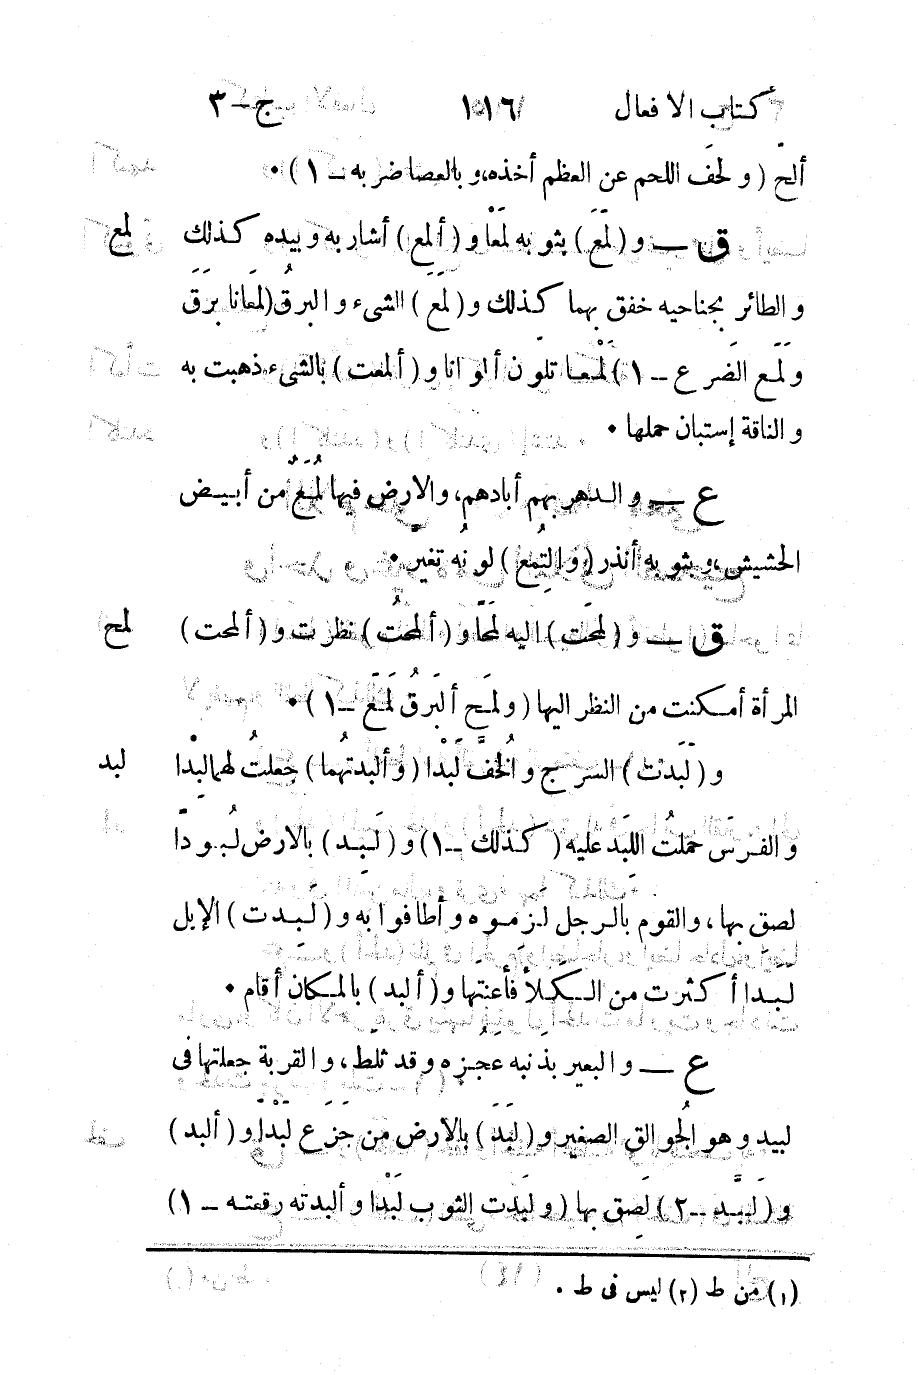 كتاب الافعال ١١٦ ج - ٣
ألح ( و لحَف اللحم عن العظم أخذه، و بالعصا ضربه - ١ ) ٠
ق — و ( لَمَعَ ) بثوبه لَمْعا و ( ألمع ) أشار به و بيده كذلك لمع
و الطائر بجناحيه خفق بهما كذلك و ( لمَعَ ) الشىء و البرقُ ( لمَعَانا برَقَ
و لَمَع الضَرع - ١ ) لَمْعا تلوّن ألوانا و ( ألمعت ) بالشىء ذهبت به
و الناقة إستبان حملها ٠
ع — و الدهر بهم أبادهم، والارض فيها لُمَعٌ من أبيض
الحشيش، و بثوبه أنذر ( و التُمِع ) لونُه تغيّر ٠
ق — و ( لمَحَت ) اليه لمَحًا و ( ألمحتُ ) نظرت و ( ألمحت ) لمح
المرأة أمكنت من النظر اليها ( و لمَح ألبَرقُ لمَعَ - ١ ) ٠
و ( لَبَدْتُ ) السرج و الخُفَّ لَبْدًا ( و ألبدتُهما ) جعلتُ لهما لِبْدًا لبد
و الفرسَ حملتُ اللِّبَد عليه ( كذلك - ١ ) و ( لَبِد ) بالارض لُبودًا
لصق بها، والقوم بالرجل لزموه و أطافوا به و ( لَبِدت ) الإبل
لَبَدا أكثرت من الكَلأ فأعنتها و ( ألبد ) بالمكان أقام ٠
ع — و البعير بذنبه عجُزِه و قد ثلط، و القربة جعلتها فى
لبيد و هو الجُوالق الصغير و ( لبَدَ ) بالارض من جَزَع لَبْدًا و ( ألبد )
و ( لَبَّد - ٢ ) لَصِق بها ( و لبَدت الثوب لَبْدا و ألبدته رقعته - ١ )
(١) من ط (٢) ليس فى ط ٠